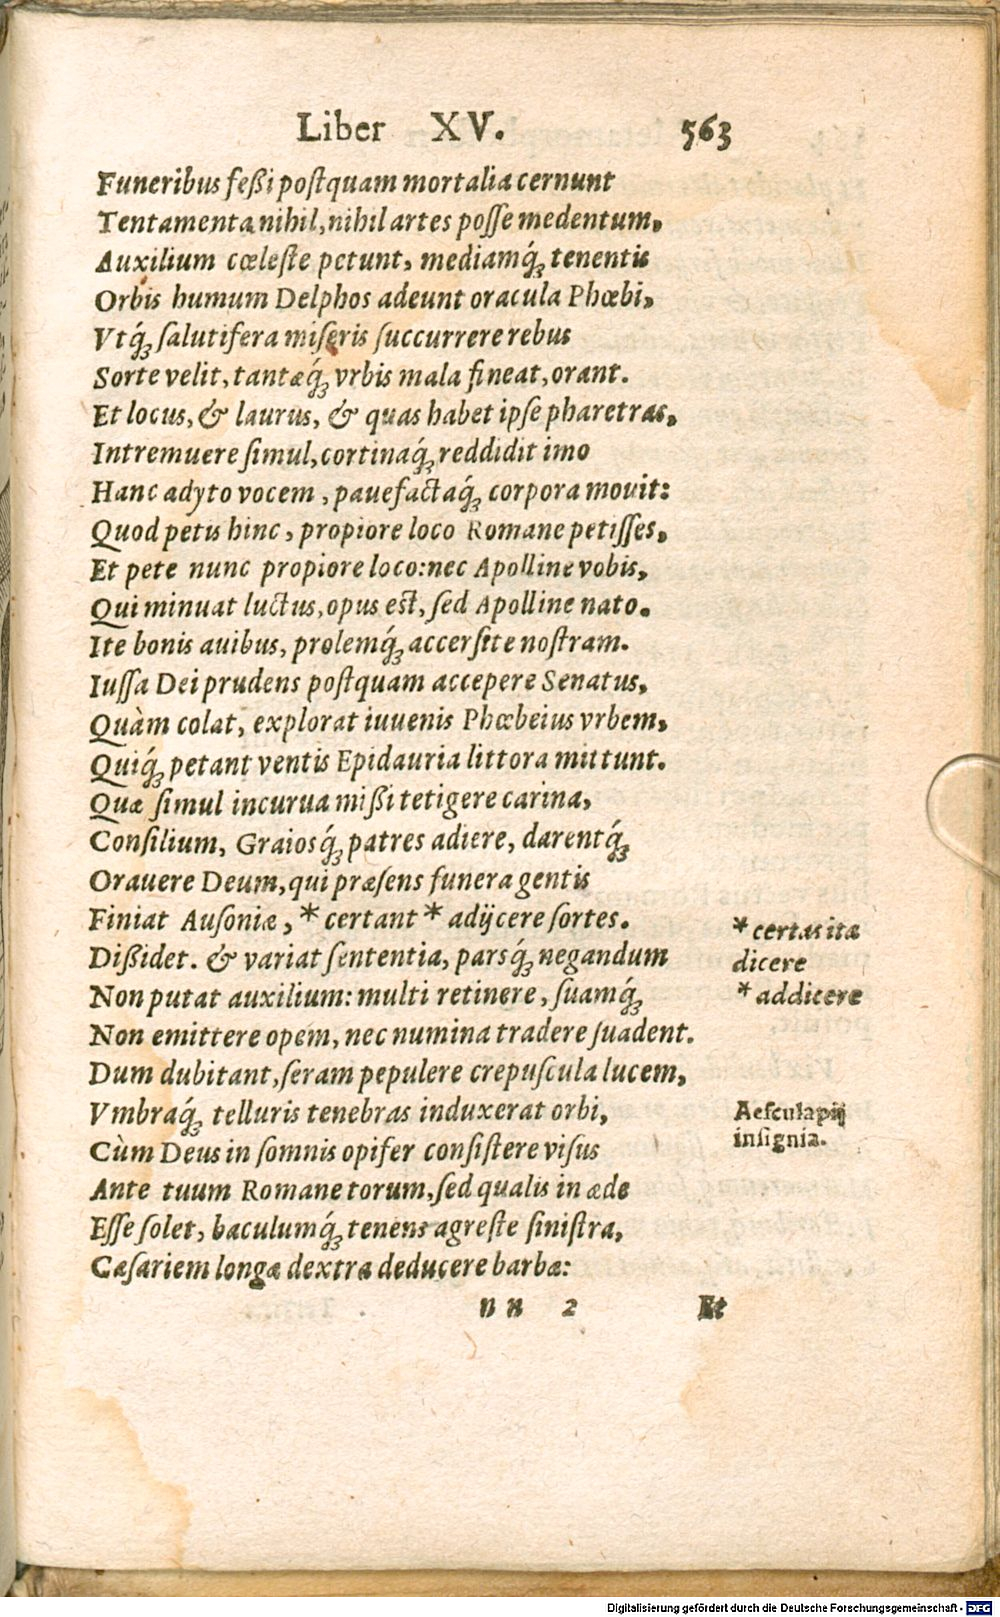 Liber XV. 563
Funeribus feßi poſtquam mortalia cernunt
Tentamenta nihil, nihil artes poſſe medentum,
Auxilium cœleſte petunt, mediamq́ꝫ tenentis
Orbis humum Delphos adeunt oracula Phœbi,
Vtq́ꝫ ſalutifera miſeris ſuccurrere rebus
Sorte velit, tantæq́ꝫ vrbis mala fineat, orant.
Et locus, & laurus, & quas habet ipſe pharetras,
Intremuere ſimul, cortinaq́ꝫ reddidit imo
Hanc adyto vocem, pauefactaq́ꝫ corpora mouit:
Quod petis hinc, propiore loco Romane petiſſes,
Et pete nunc propiore loco: nec Apolline vobis,
Qui minuat luctus, opus eſt, ſed Apolline nato.
Ite bonis auibus, prolemq́ꝫ accerſite noſtram.
Iuſſa Dei prudens poſtquam accepere Senatus,
Quàm colat, explorat iuuenis Phœbeius vrbem,
Quiq́ꝫ petant ventis Epidauria littora mittunt.
Quæ ſimul incurua mißi tetigere carina,
Conſilium, Graiosq́ꝫ patres adiere, darentq́ꝫ
Orauere Deum, qui præſens funera gentis
Finiat Auſoniæ, * certant * adijcere ſortes.
* certas ita
dicere
* addicere
Dißidet. & variat ſententia, parsq́ꝫ negandum
Non putat auxilium: multi retinere, ſuamq́ꝫ
Non emittere opem, nec numina tradere ſuadent.
Dum dubitant, ſeram pepulere crepuſcula lucem,
Vmbraq́ꝫ telluris tenebras induxerat orbi,
Aeſculapij
inſignia.
Cùm Deus in ſomnis opifer conſiſtere viſus
Ante tuum Romane torum, ſed qualis in æde
Eſſe ſolet, baculumq́ꝫ tenens agreſte ſiniſtra,
Cæſariem longæ dextra deducere barbæ:
nn 2 Et
Digitalisierung gefördert durch die Deutsche Forschungsgemeinschaft - DFG